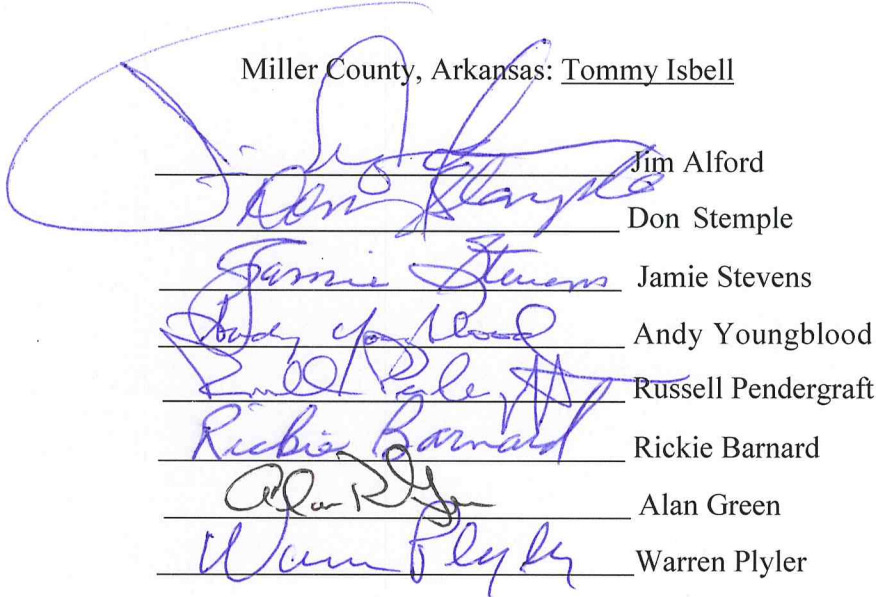 Miller County, Arkansas: Tommy Isbell
Jim Alford
Don Stemple Don Stemple
Jamie Stevens Jamie Stevens
Andy Youngblood Andy Youngblood
Russell Pendergraft
Rickie Barnard Rickie Barnard
Alan Green
Warren Plyler Warren Plyler